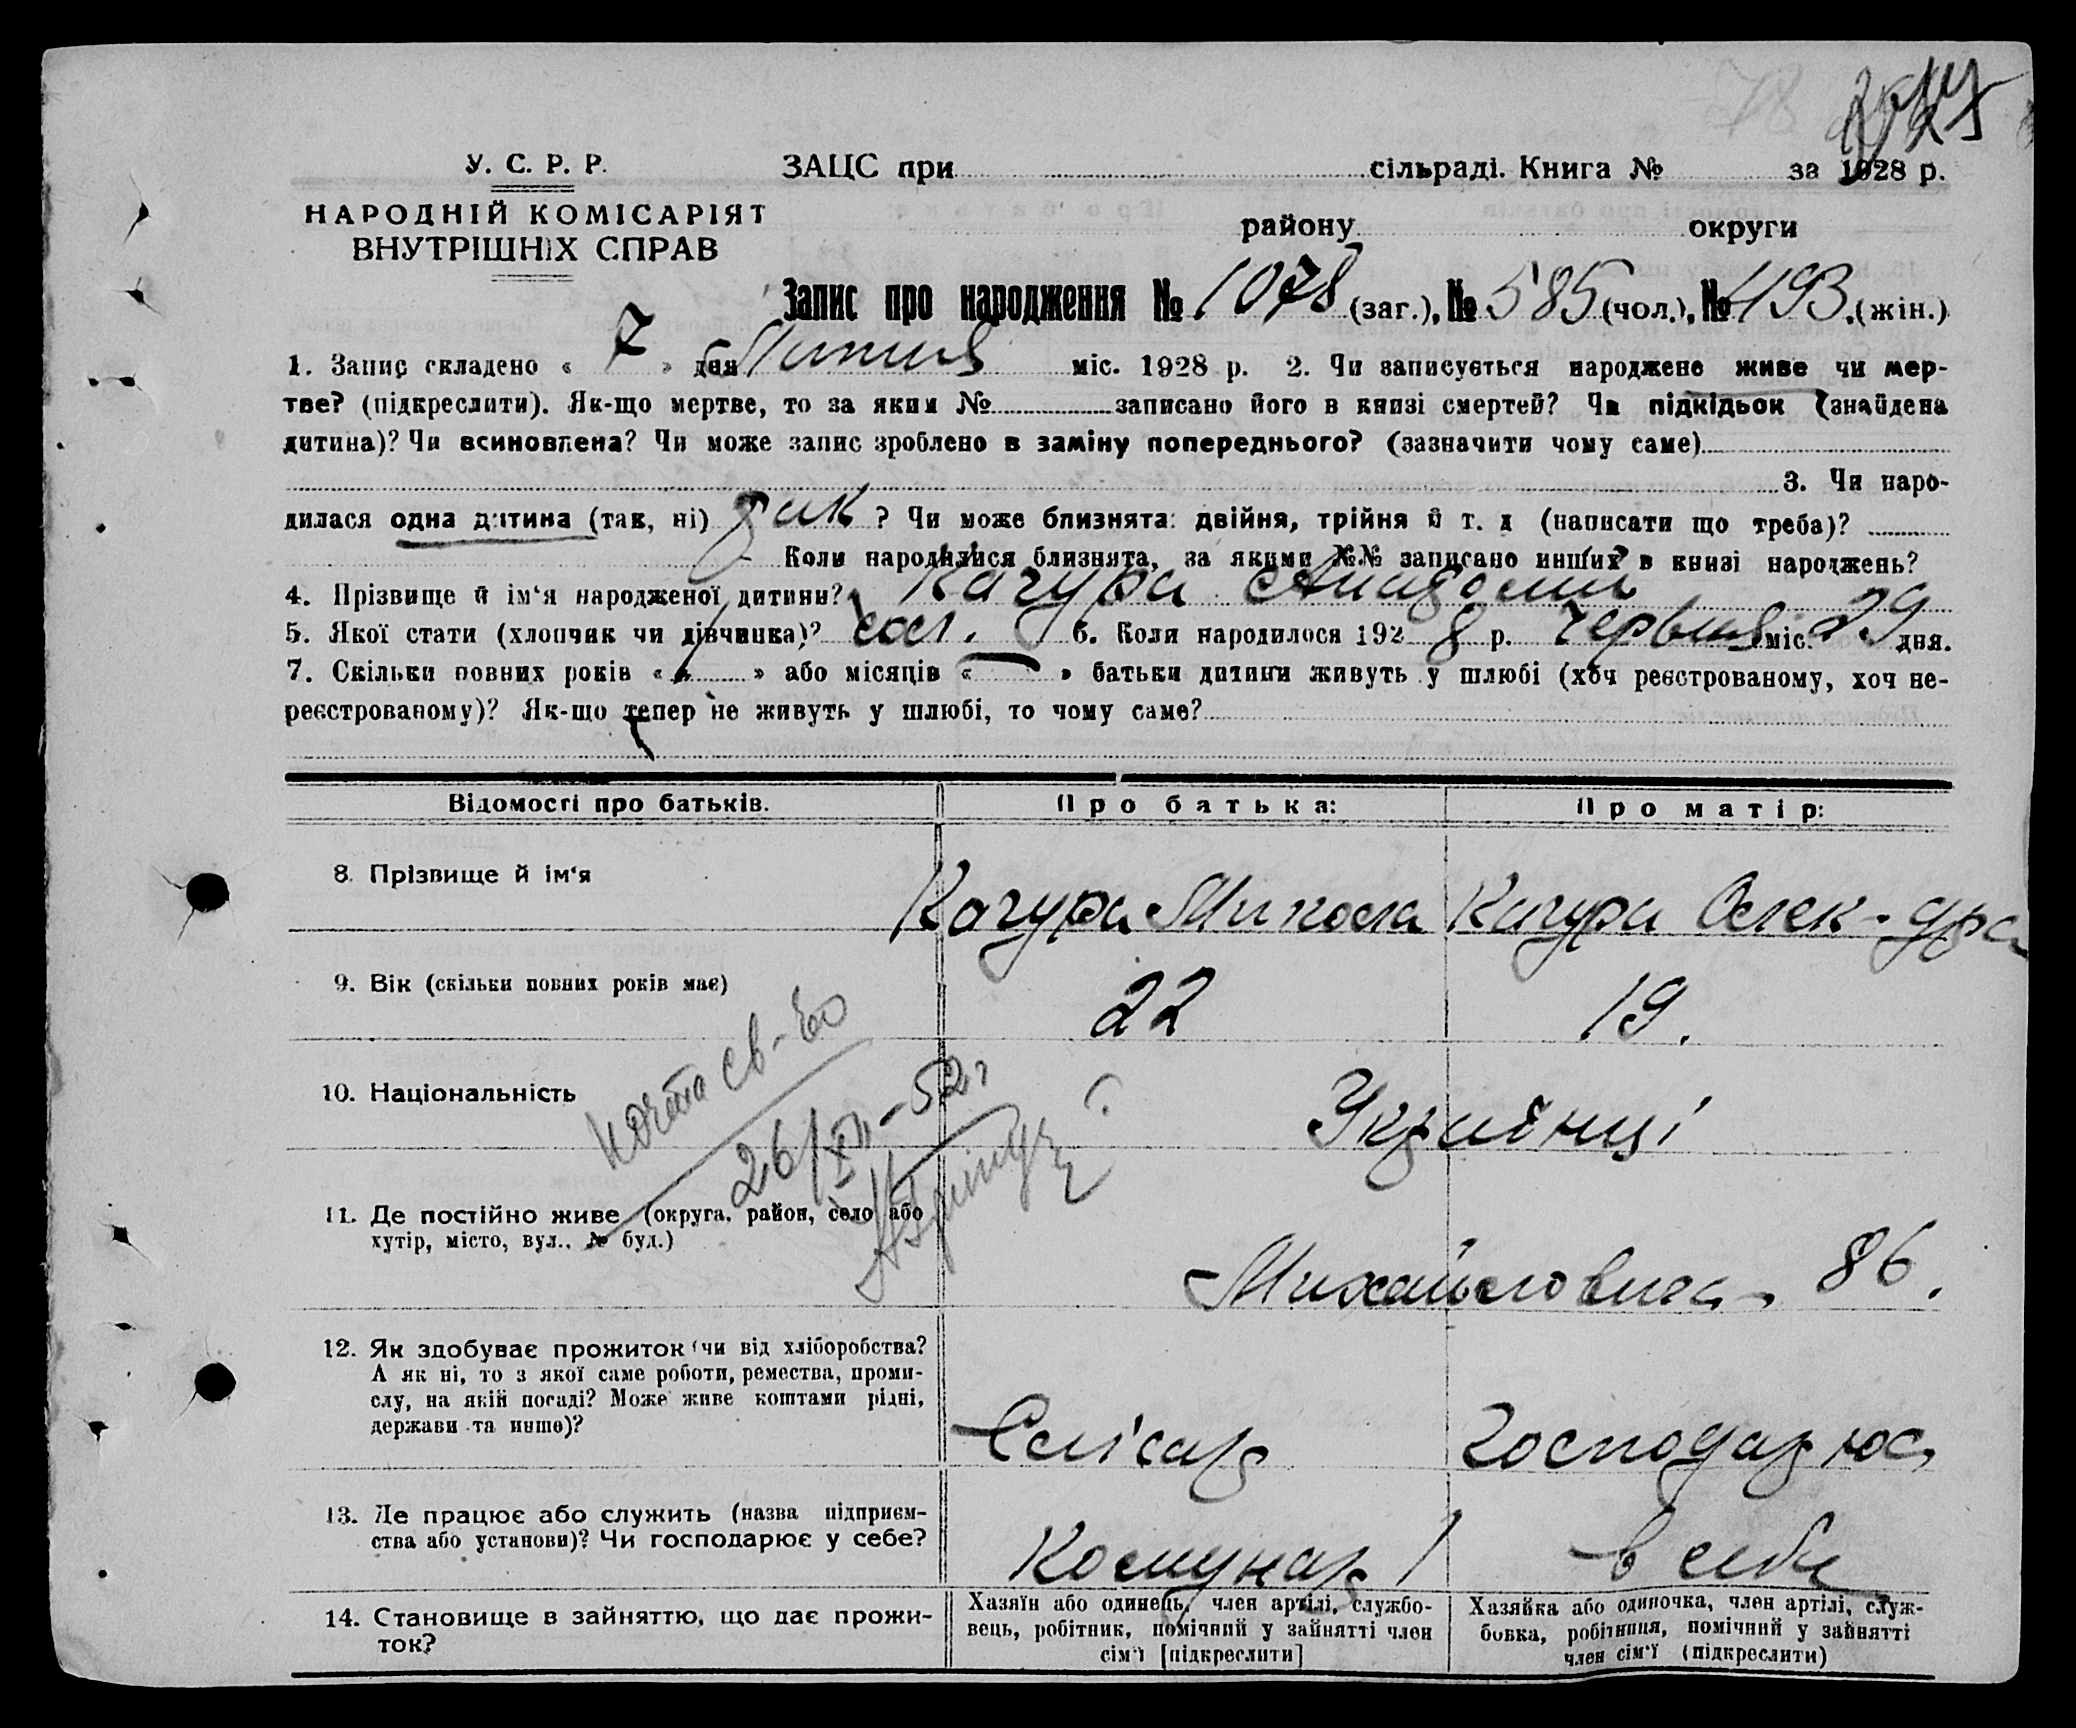 У. С. Р. Р.
НАРОДНІЙ КОМІСАРІЯТ
ВНУТРІШНІХ СПРАВ
ЗАЦС при сільраді. Книга № за 1928 р.
району округи
Запис про народження № 1078 (заг.), № 585 (чол.), № 493 (жін.)
1. Запис складено « 7 » дня Липня міс. 1928 р. 2. Чи записується народжене живе чи мер-
тве? (підкреслити). Як-що мертве, то за яким № записано його в книзі смертей? Чи підкідьок (знайдена
дитина)? Чи всиновлена? Чи може запис зроблено в заміну попереднього? (зазначити чому саме)
3. Чи наро-
дилася одна дитина (так, ні) так ? Чи може близнята: двійня, трійня й т. д (написати що треба)?
Коли народилися близнята, за якими №№ записано инших в книзі народжень?
4. Прізвище й ім'я народженої дитини? Качура Анатолий
5. Якої стати (хлопчик чи дівчинка)? хол. 6. Коли народилося 1928 р. Червня міс. 29 дня.
7. Скільки повних років « 1 » або місяців « — » батьки дитини живуть у шлюбі (хоч реєстрованому, хоч не-
реєстрованому)? Як-що тепер не живуть у шлюбі, то чому саме?
Відомості про батьків. Про батька: Про матір:
8. Прізвище й ім'я Качура Микола Качура Олек-дра
9. Вік (скільки повних років має) 22 19.
26/XII-52г
10. Національність Українці
11. Де постійно живе (округа, район, село або
хутір, місто, вул., № буд.) Михайловка, 86.
12. Як здобуває прожиток (чи від хліборобства?
А як ні, то з якої саме роботи, ремества, проми-
слу, на якій посаді? Може живе коштами рідні,
держави та инше)? Слісар Господарює
13. Де працює або служить (назва підприєм-
ства або установи)? Чи господарює у себе? Комунар в себе
14. Становище в зайняттю, що дає прожи-
ток?
Хазяїн або одинець, член артілі, службо-
вець, робітник, помічний у зайнятті член
сім'ї [підкреслити]
Хазяйка або одиночка, член артілі, служ-
бовка, робітниця, помічний у зайнятті
член сім'ї (підкреслити)